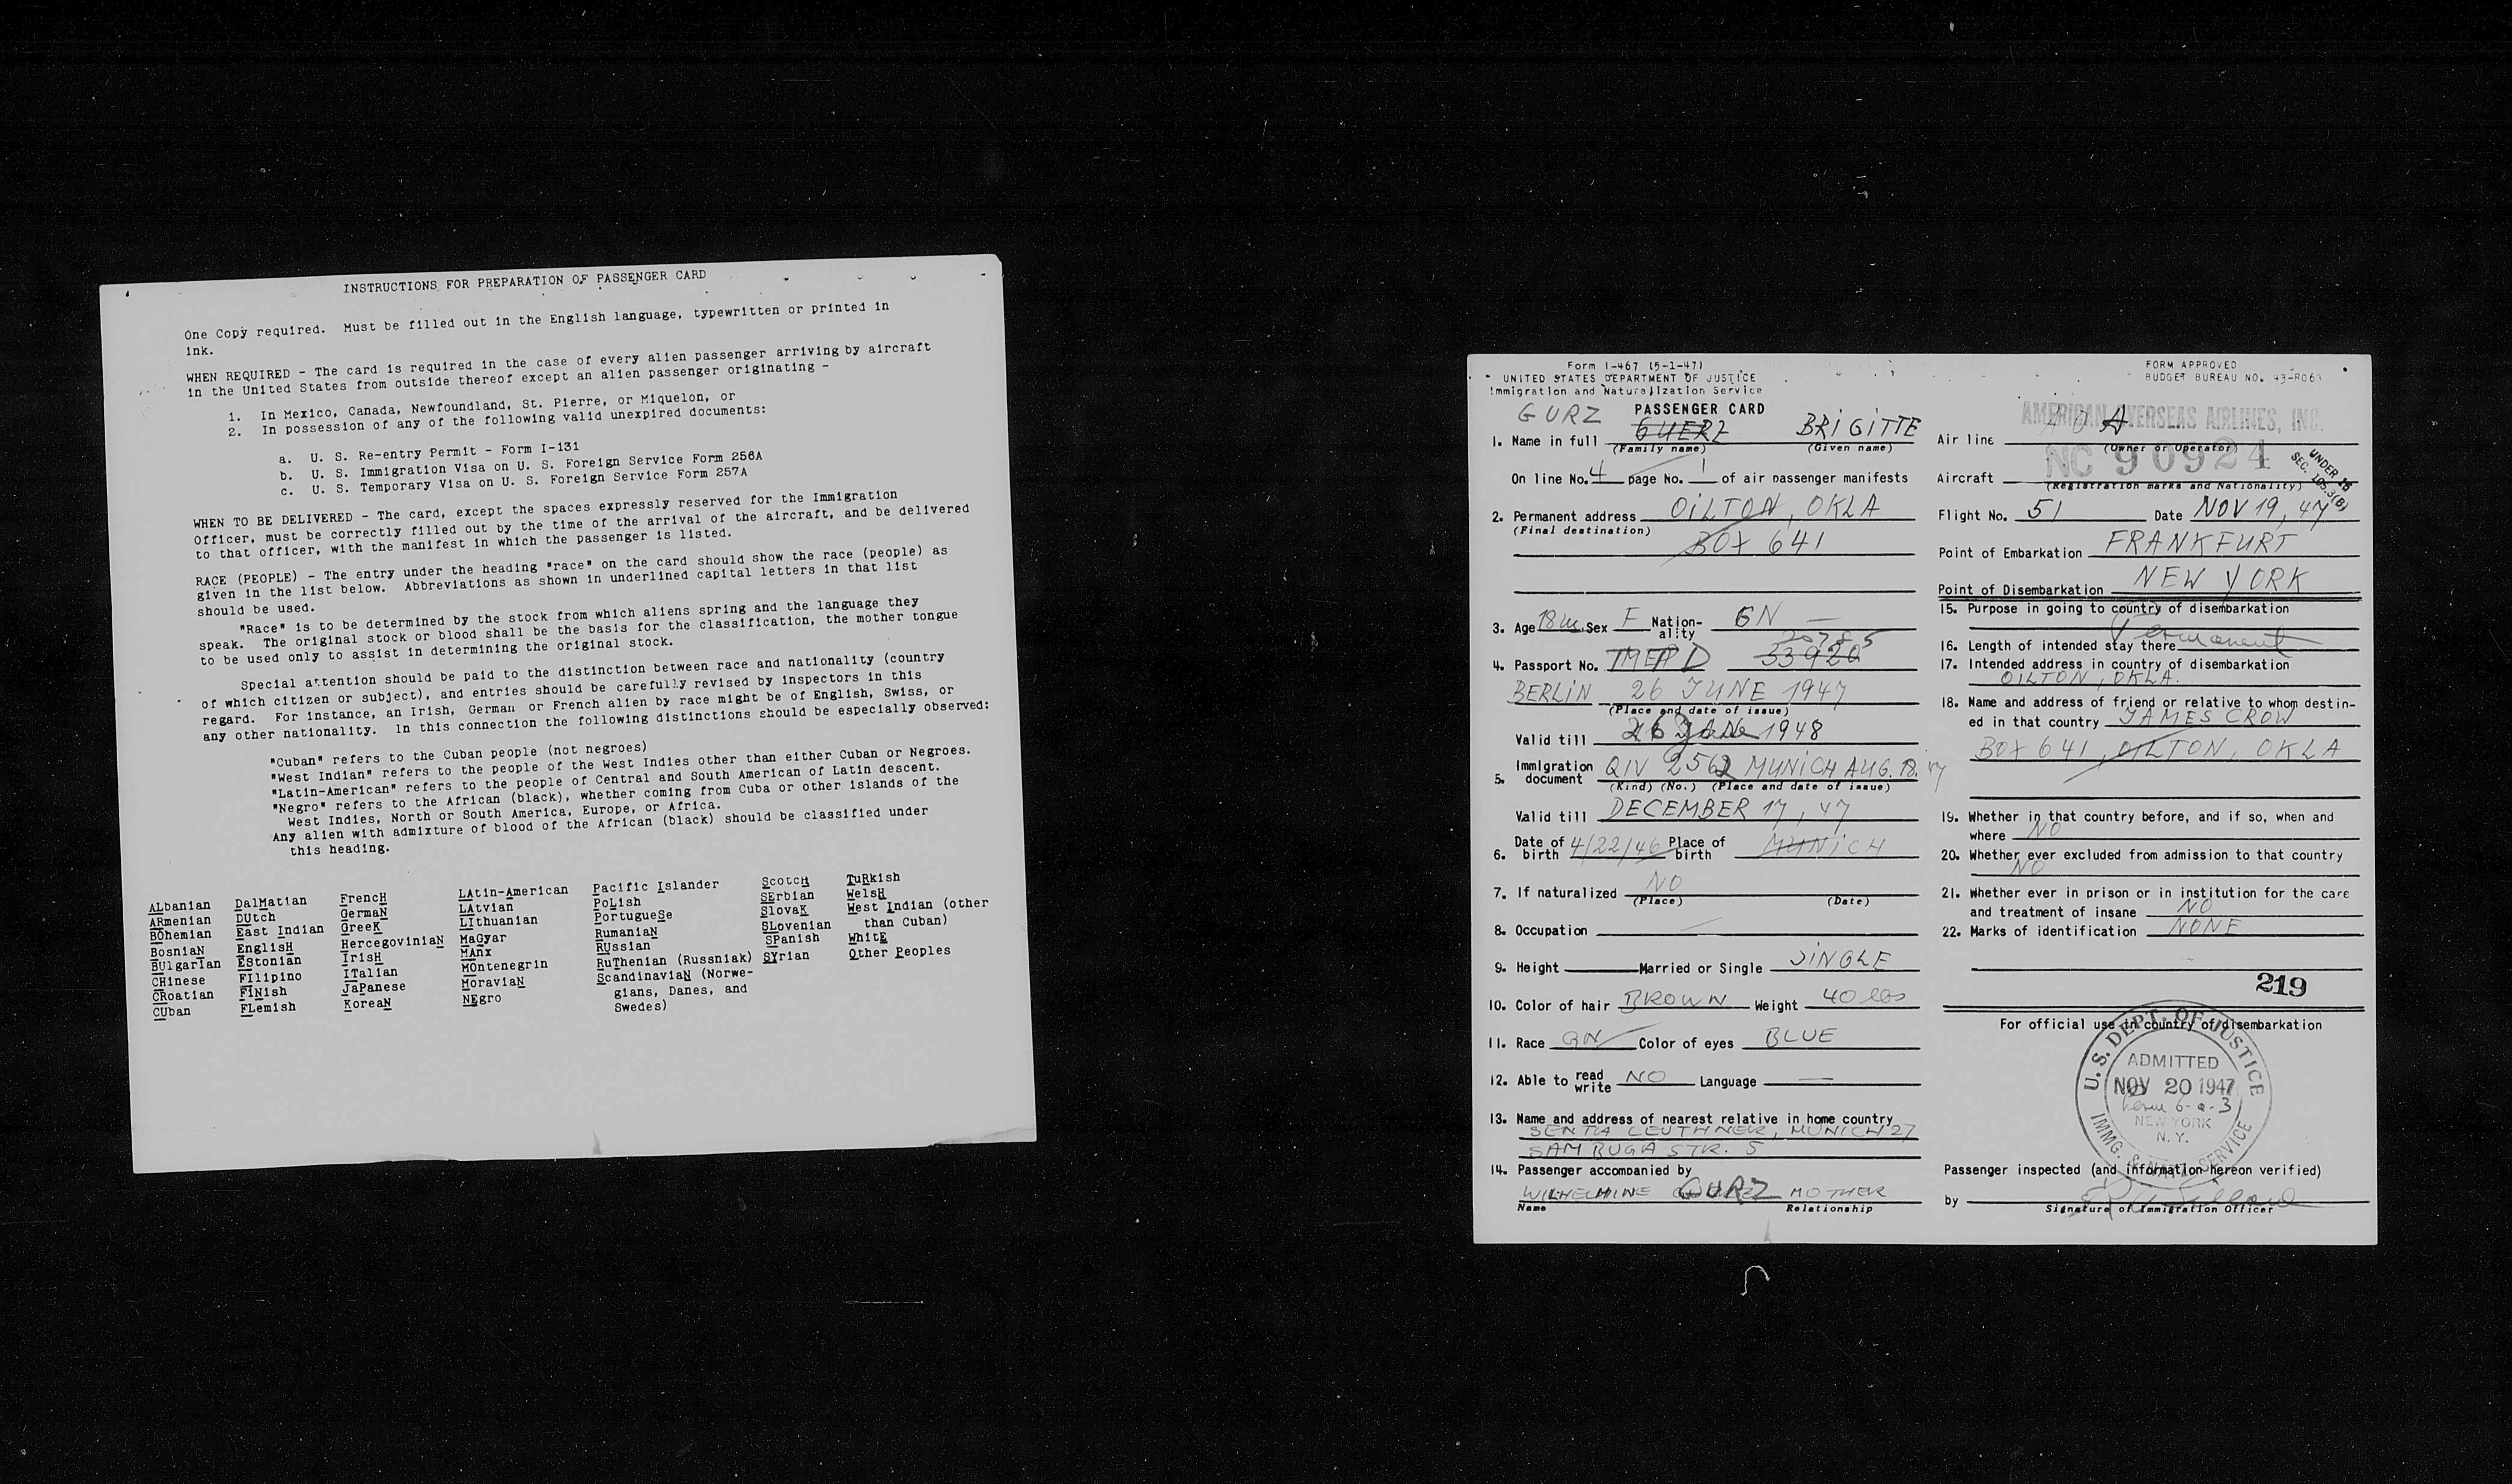 INSTRUCTIONS FOR PREPARATION OF PASSENGER CARD
One Copy required. Must be filled out in the English language, typewritten or printed in
ink.
WHEN REQUIRED - The card is required in the case of every alien passenger arriving by aircraft
in the United States from outside thereof except an alien passenger originating -
1. In Mexico, Canada, Newfoundland, St. Pierre, or Miquelon, or
2. In possession of any of the following valid unexpired documents:
a. U. S. Re-entry Permit - Form I-131
b. U. S. Immigration Visa on U. S. Foreign Service Form 256A
c. U. S. Temporary Visa on U. S. Foreign Service Form 257A
WHEN TO BE DELIVERED - The card, except the spaces expressly reserved for the Immigration
Officer, must be correctly filled out by the time of the arrival of the aircraft, and be delivered
to that officer, with the manifest in which the passenger is listed.
RACE (PEOPLE) - The entry under the heading "race" on the card should show the race (people) as
given in the list below. Abbreviations as shown in underlined capital letters in that list
should be used.
"Race" is to be determined by the stock from which aliens spring and the language they
speak. The original stock or blood shall be the basis for the classification, the mother tongue
to be used only to assist in determining the original stock.
Special attention should be paid to the distinction between race and nationality (country
of which citizen or subject), and entries should be carefully revised by inspectors in this
regard. For instance, an Irish, German or French alien by race might be of English, Swiss, or
any other nationality. In this connection the following distinctions should be especially observed:
"Cuban" refers to the Cuban people (not negroes)
"West Indian" refers to the people of the West Indies other than either Cuban or Negroes.
"Latin-American" refers to the people of Central and South American of Latin descent.
"Negro" refers to the African (black), whether coming from Cuba or other islands of the
West Indies, North or South America, Europe, or Africa.
Any alien with admixture of blood of the African (black) should be classified under
this heading.
ALbanian DalMatian FrencH LAtin-American Pacific Islander ScotcH TuRkish
ARmenian DUtch GermaN LAtvian PoLish SErbian WelsH
BOhemian East Indian GreeK LIthuanian PortugueSe SlovaK West Indian (other
BosniaN EnglisH HercegoviniaN MaGyar RumaniaN SLovenian than Cuban)
BUlgarian EStonian IrisH MAnx RUssian SPanish WhitE
CHinese FIlipino ITalian MOntenegrin RuThenian (Russniak) SYrian Other Peoples
CRoatian FINish JaPanese MoraviaN ScandinaviaN (Norwe-
CUban FLemish KoreaN NEgro gians, Danes, and
Swedes)
Form I-467 (5-1-47)
UNITED STATES DEPARTMENT OF JUSTICE
Immigration and Naturalization Service
FORM APPROVED
BUDGET BUREAU NO. 43-R063
PASSENGER CARD
GURZ
1. Name in full GUERZ BRIGITTE
(Family name) (Given name)
On line No. 4 page No. 1 of air passenger manifests
2. Permanent address OILTON, OKLA
(Final destination)
BOX 641
3. Age 18 m. Sex F Nation-ality GN
20785
4. Passport No. TMEPD 33920
BERLIN 26 JUNE 1947
(Place and date of issue)
Valid till 26 1948
5. Immigration document QIV 2562 MUNICH AUG. 18. 47
(Kind) (No.) (Place and date of issue)
Valid till DECEMBER 17, 47
6. Date of birth 4/22/46 Place of birth MUNICH
7. If naturalized NO
(Place) (Date)
8. Occupation
9. Height Married or Single SINGLE
10. Color of hair BROWN Weight 40 lbs
11. Race GN Color of eyes BLUE
12. Able to read write NO Language
13. Name and address of nearest relative in home country
SENTA LEUTHNER, MUNICH 27
SAMBUGA STR. 5
14. Passenger accompanied by
WILHELMINE GURZ MOTHER
Name Relationship
AMERICAN OVERSEAS AIRLINES, INC.
Air line AOA
(Owner or Operator)
NC 90924
Aircraft
(Registration marks and Nationality)
UNDER 16
SEC. 105.3(B)
Flight No. 51 Date NOV 19, 47
Point of Embarkation FRANKFURT
Point of Disembarkation NEW YORK
15. Purpose in going to country of disembarkation
16. Length of intended stay there Permanent
17. Intended address in country of disembarkation
OILTON, OKLA.
18. Name and address of friend or relative to whom destin-
ed in that country JAMES CROW
BOX 641, OILTON, OKLA
19. Whether in that country before, and if so, when and
where NO
20. Whether ever excluded from admission to that country
NO
21. Whether ever in prison or in institution for the care
and treatment of insane NO
22. Marks of identification NONE
219
For official use in country of disembarkation
U.S. DEPT. OF JUSTICE
ADMITTED
NOV 20 1947
6-a-3
NEW YORK
N. Y.
IMMG. & NATZ. SERVICE
Passenger inspected (and information hereon verified)
by
Signature of Immigration Officer